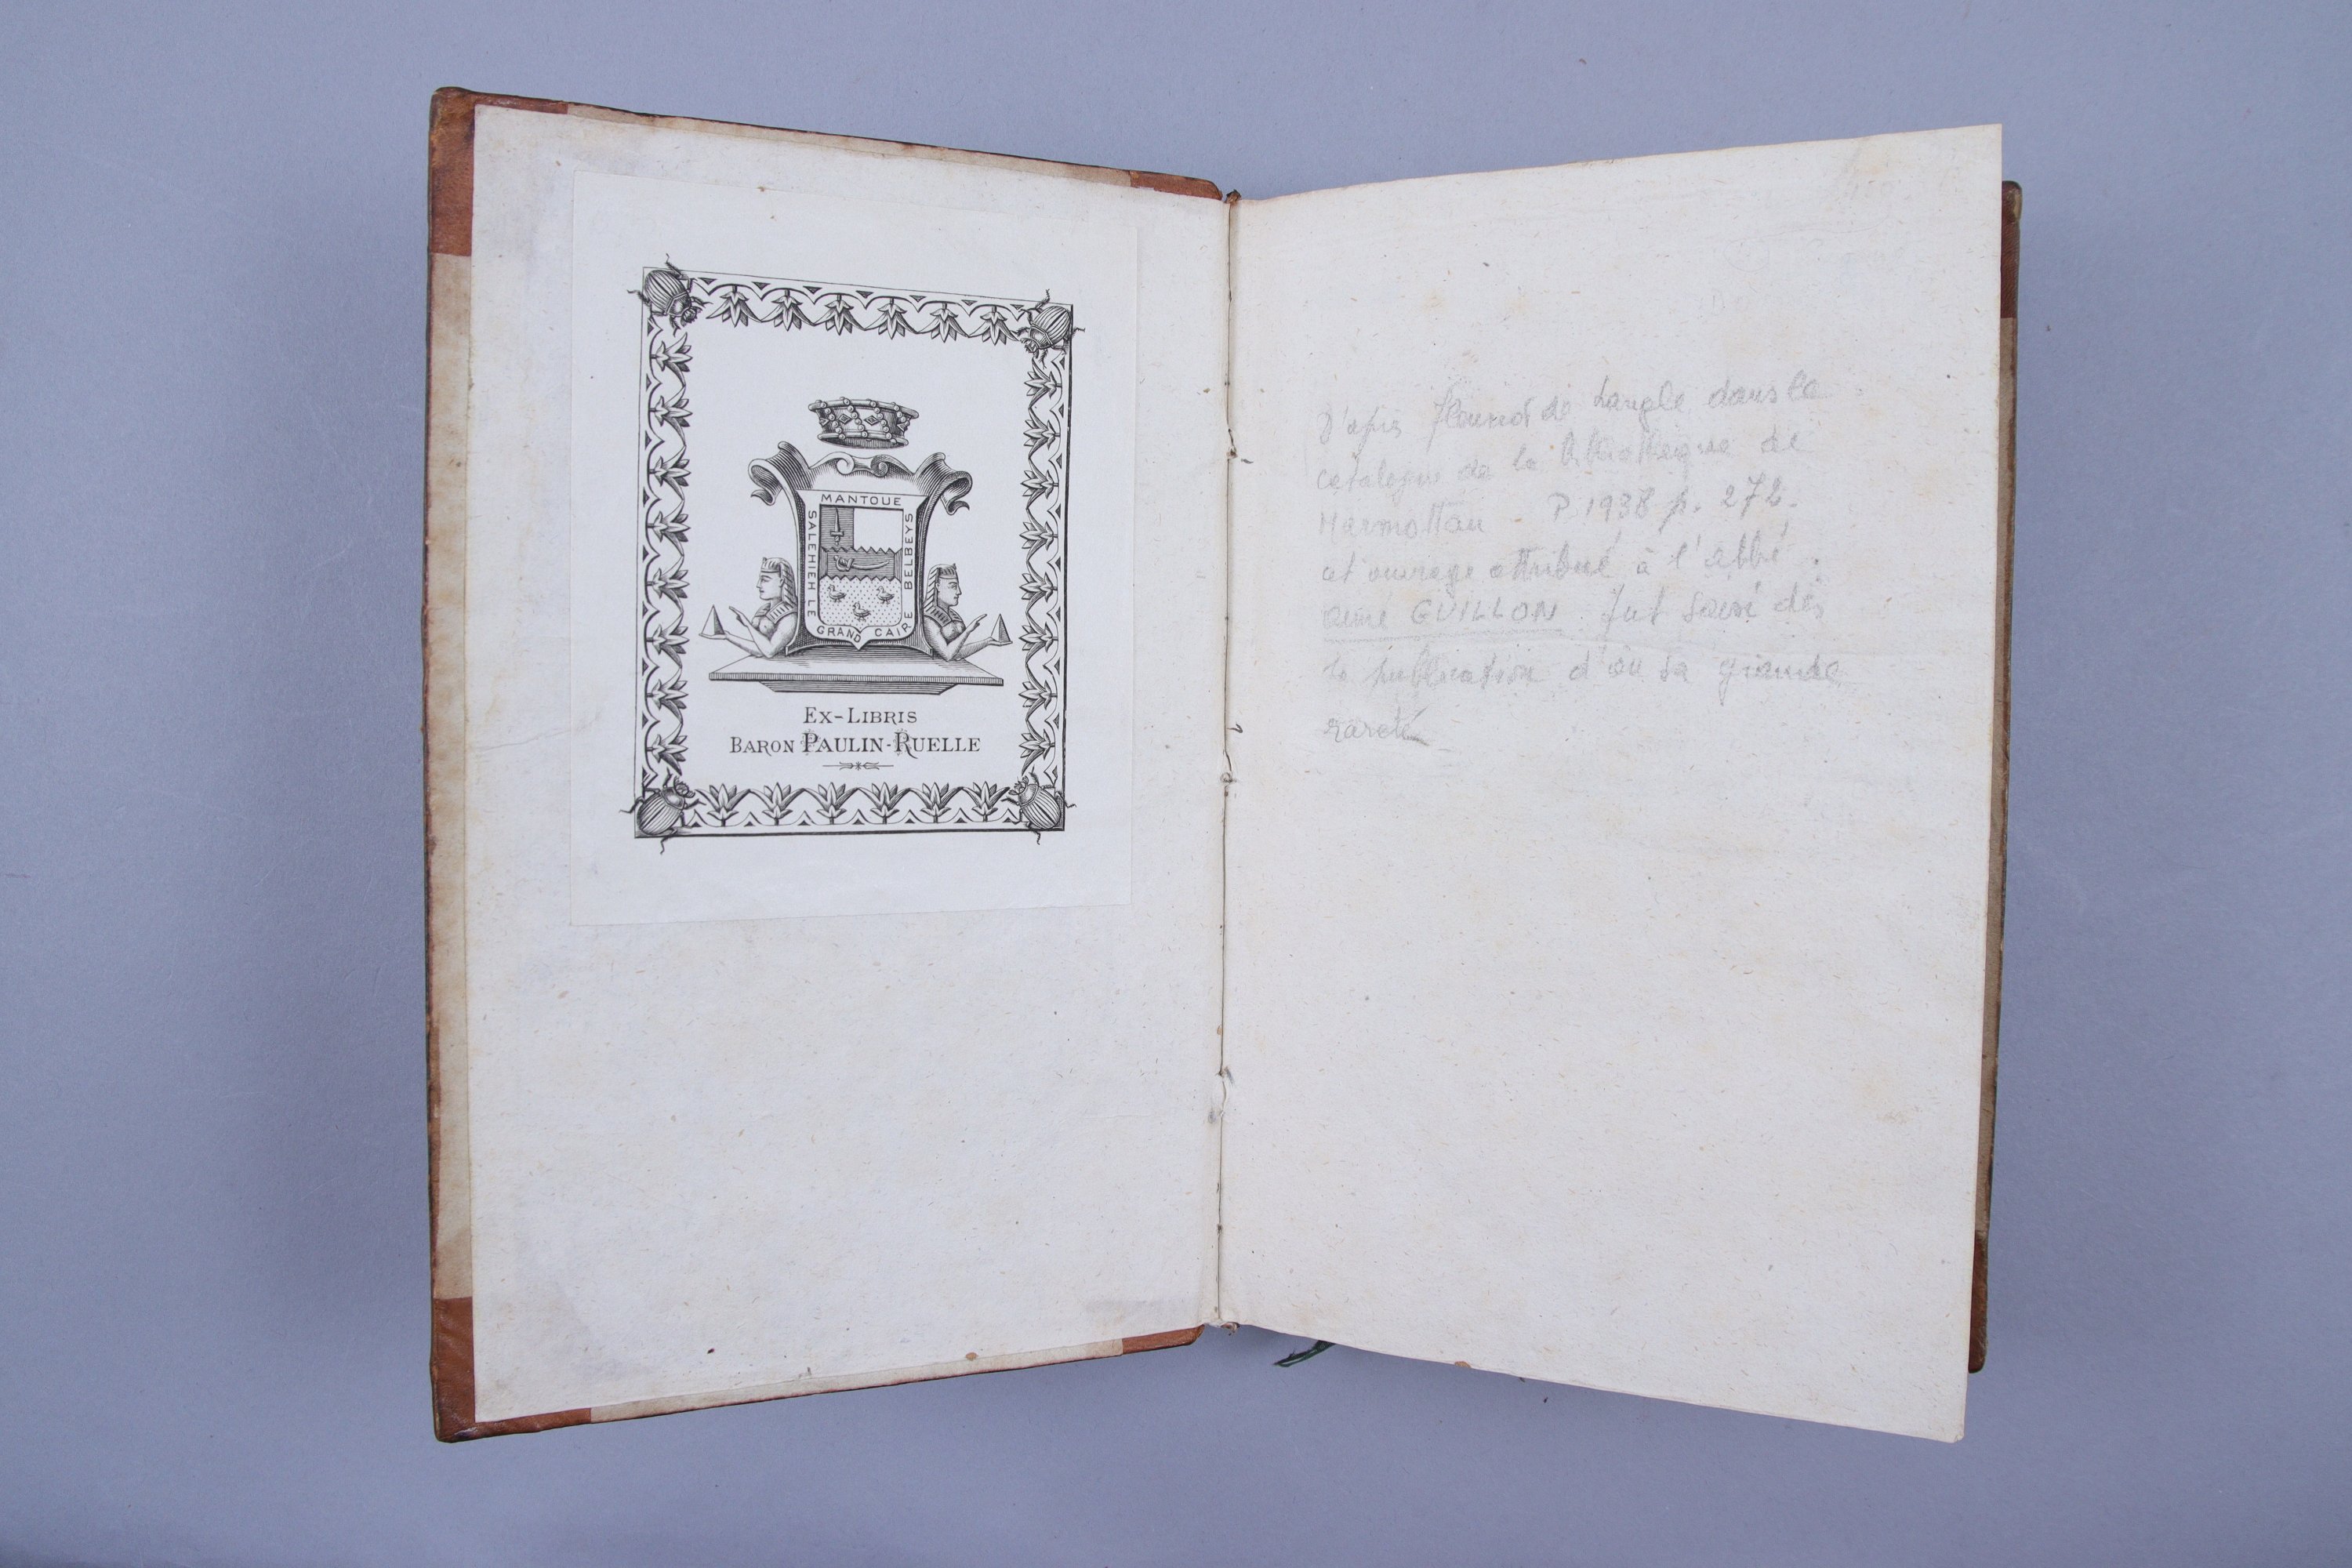 MANTOUE
SALEHIEH LE
GRAND CAIRE
BELBEYS
EX-LIBRIS
BARON PAULIN-RUELLE
D'après fleuriot de Langle dans le
catalogue de la bibliothèque de
Marmottan P 1938 p. 272.
cet ouvrage attribué à l'abbé
aimé GUILLON fut saisi dès
la publication d'où sa grande
rareté